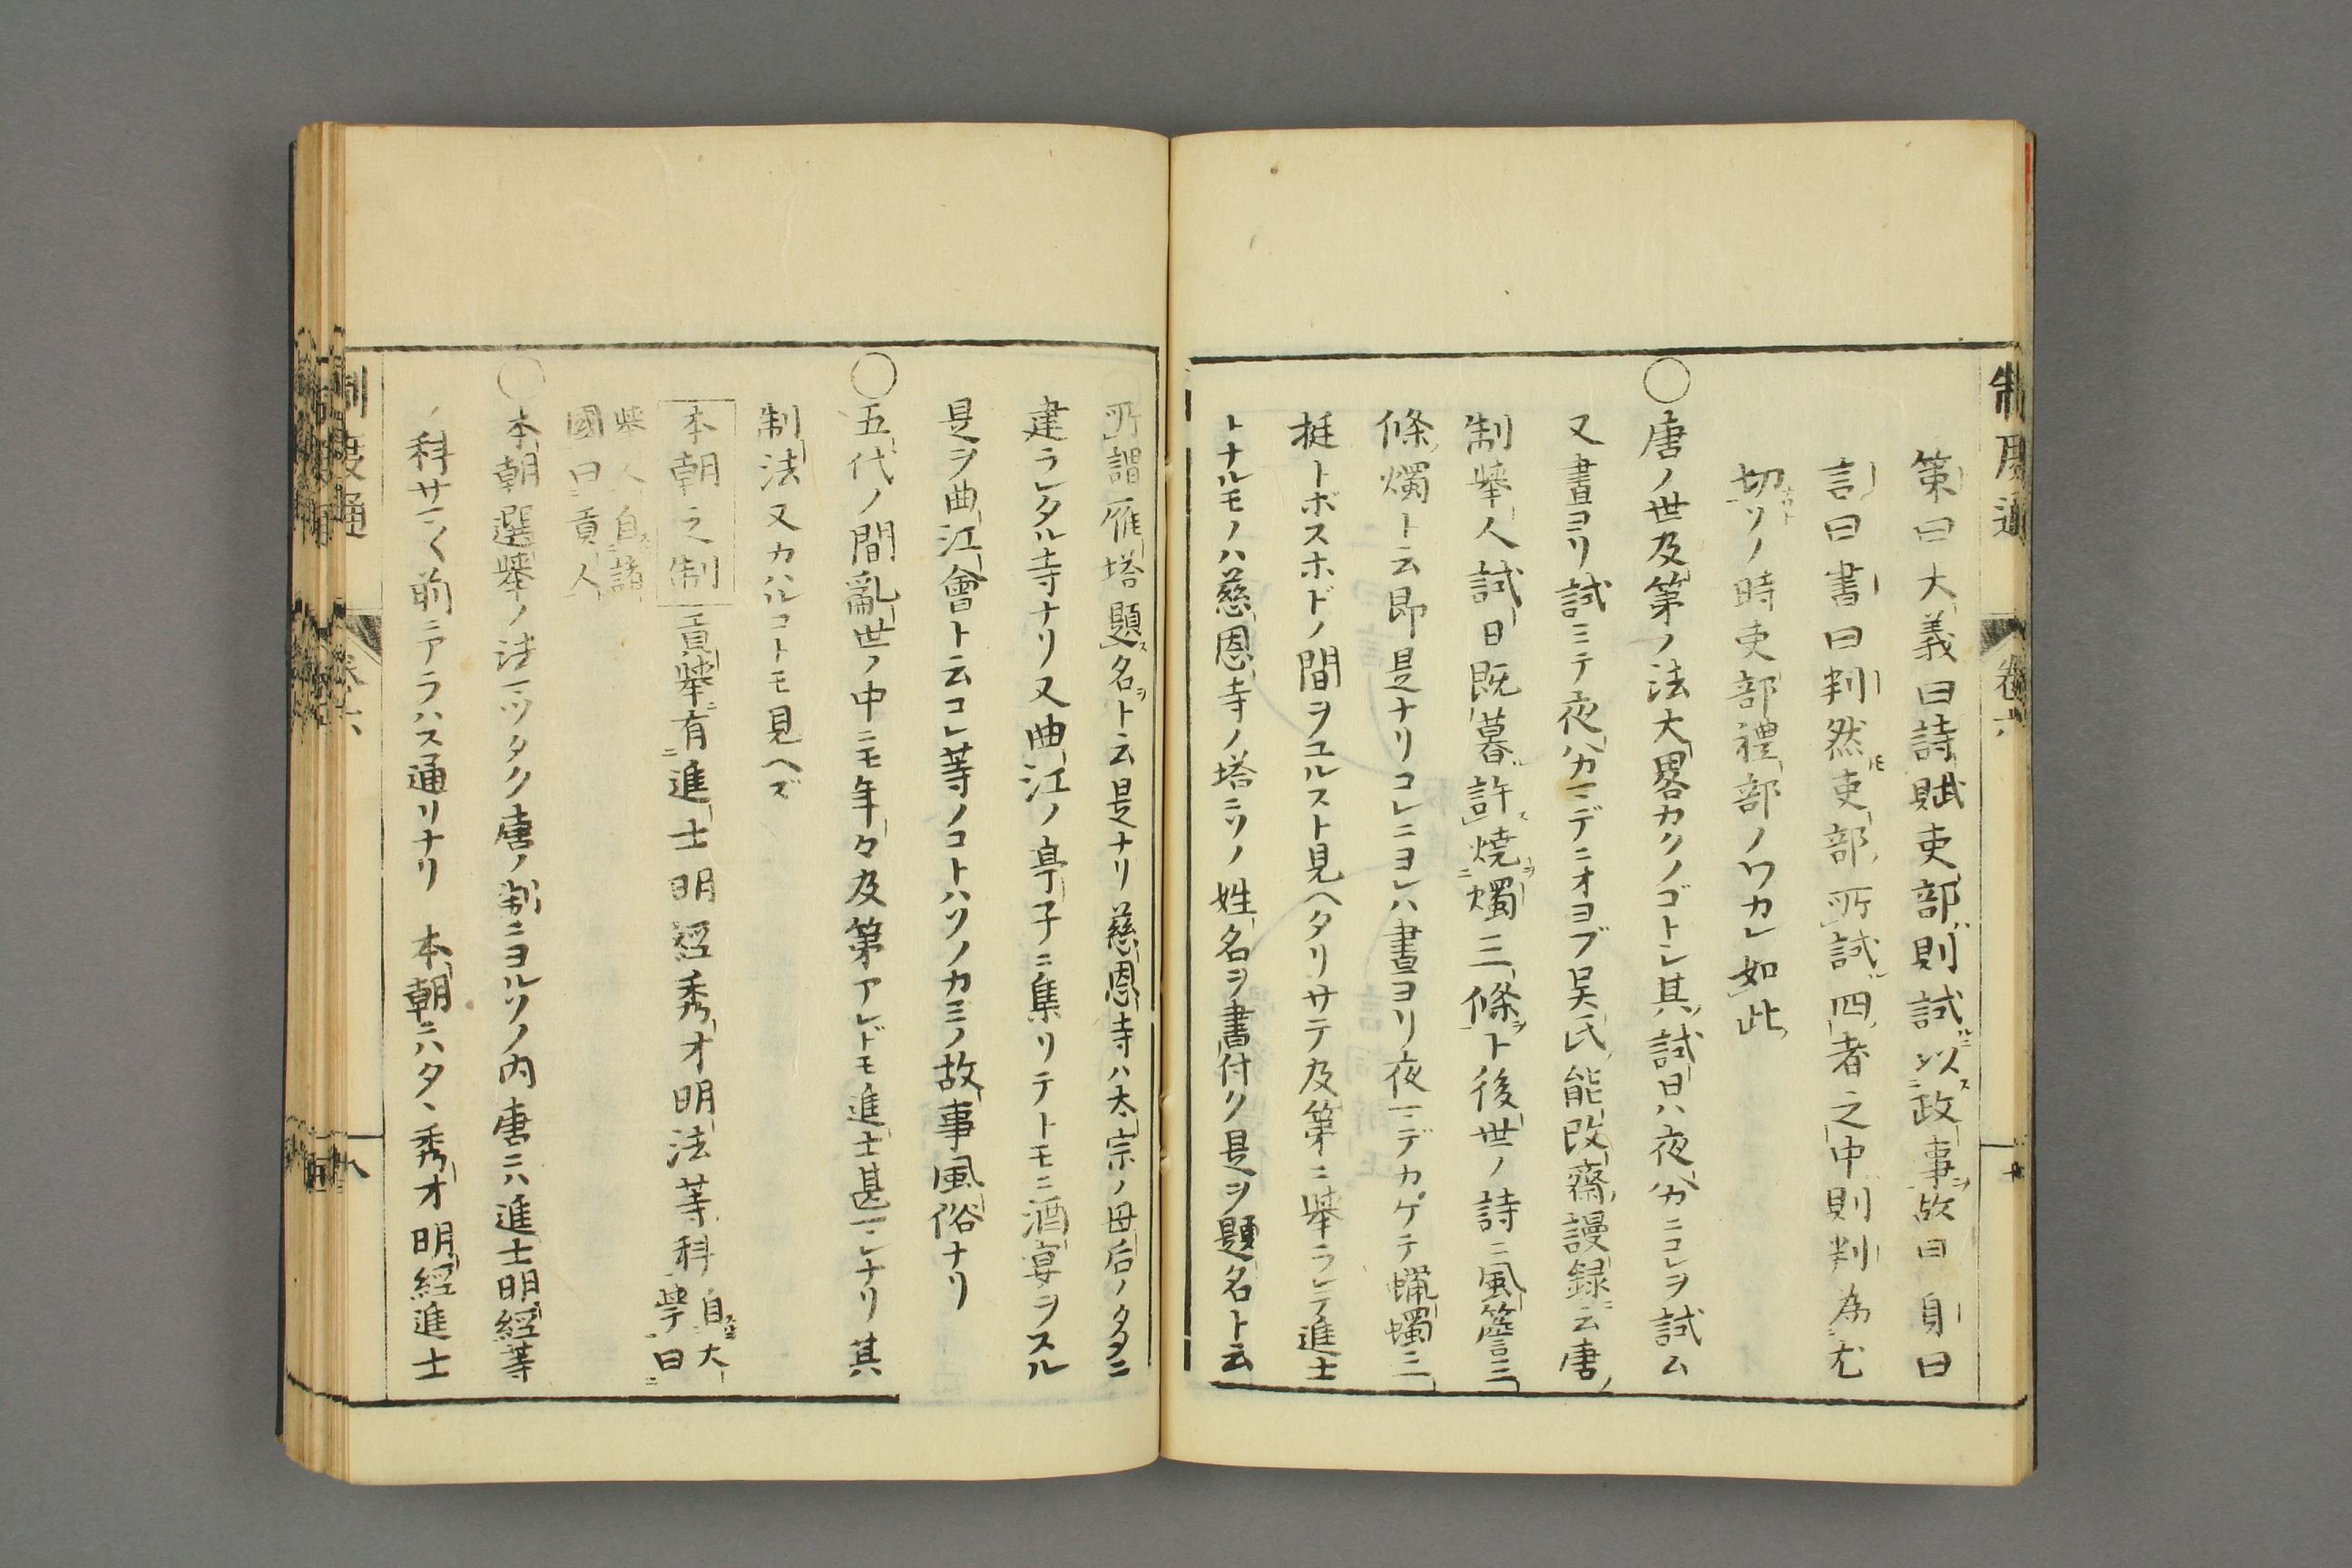 第曰大義曰詩賦吏部則試以政事故曰身曰
言曰書曰判然吏部所試四者之中則判為尤
切ソノ時吏部禮部ノワカレ如此
○唐ノ世及第ノ法大畧カクノゴトシ其試日ハ夜分ニコレヲ試ム
又晝ヨリ試ミテ夜分マデニオヨブ吴氏能改齋謾録云唐
制舉人試日既暮許燒燭三條ト後世ノ詩ニ風簷三
條燭ト云即是ナリコレニヨレハ晝ヨリ夜マデカケテ蝋蠋三
挺トボスホドノ間ヲユルスト見ヘタリサテ及第ニ舉ラレテ進士
トナルモノハ慈恩寺ノ塔ニソノ姓名ヲ書付ク是ヲ題名ト云
所謂雁塔題名ト云是ナリ慈恩寺ハ太宗ノ母后ノタメニ
建ラレタル寺ナリ又曲江ノ亭子ニ集リテトモニ酒宴ヲスル
是ヲ曲江會ト云コレ等ノコトハソノカミノ故事風俗ナリ
○五代ノ間亂世ノ中ニモ年々及第アレドモ進士甚マレナリ其
制法又カハルコトモ見ヘズ
本朝之制 貢舉有進士明經秀才明法等科 自大學曰
舉人自諸國曰貢人
○本朝選舉ノ法マツタク唐ノ制ニヨルソノ内唐ニハ進士明經等
ノ科サマ〱前ニアラハス通リナリ 本朝ニハタヽ秀才明經進士
制度通 卷六
制度通 卷六 八